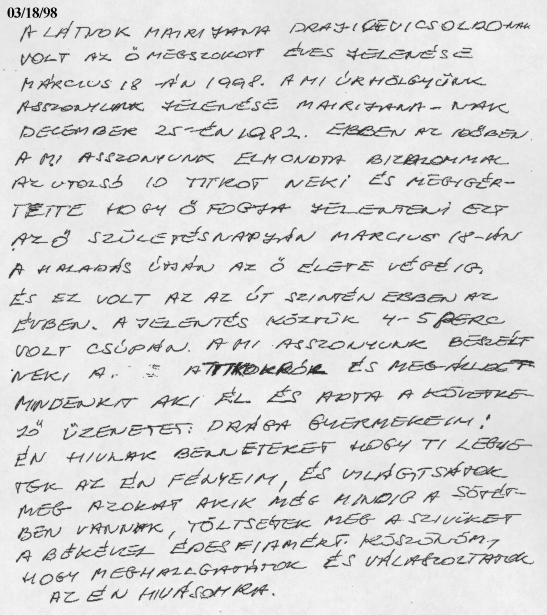 03/18/98
A LÁTNOK MAIRIJANA DRAJICEVICSOLDO-NAK
VOLT AZ Ő MEGSZOKOTT ÉVES JELENÉSE
MÁRCIUS 18 -ÁN 1998. A MI ÚRHÖLGYÜNK
ASSZONYUNK JELENÉSE MAIRIJANA-NAK
DECEMBER 25-ÉN 1982. EBBEN AZ IDŐBEN
A MI ASSZONYUNK ELMONDTA BIZALOMMAL
AZ UTOLSÓ 10 TITKOT NEKI ÉS MEGIGÉR-
TETTE HOGY Ő FOGJA JELENTENI EZT
AZ Ő SZÜLETÉSNAPJÁN MARCIUS 18-ÁN
A HALADÁS ÚTJÁN AZ Ő ÉLETE VÉGÉIG,
ÉS EZ VOLT AZ AZ ÚT SZINTÉN EBBEN AZ
ÉVBEN. A JELENTÉS KÖZTÜK 4-5 PERC
VOLT CSÚPÁN. A MI ASSZONYUNK BESZÉLT
NEKI A. A TITKOKRÓL ÉS MEGÁLDOTT
MINDENKIT AKI ÉL ÉS ADTA A KÖVETKE-
ZŐ ÜZENETET: DRÁGA GYERMEKEIM!
ÉN HIVLAK BENNETEKET HOGY TI LEGYE-
TEK AZ ÉN FÉNYEIM, ÉS VILÁGITSATOK
MEG AZOKAT AKIK MÉG MINDIG A SÖTÉT-
BEN VANNAK, TÖLTSETEK MEG A SZIVÜKET
A BÉKÉVEL ÉDESFIAMÉRT. KÖSZÖNÖM,
HOGY MEGHALLGATÁTOK ÉS VÁLASZOLTATOK
AZ ÉN HIVÁSOMRA.